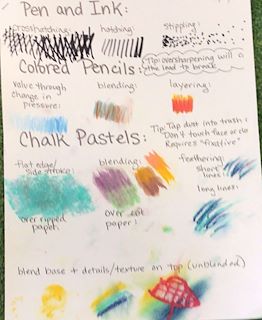 Pen and Ink:
crosshatching: hatching: stippling:
Colored Pencils:
Tip: oversharpening will cause
the lead to break
value through
change in
pressure:
blending:
layering:
Chalk Pastels:
Tip: Tap dust into trash
Don't touch face or
Requires "fixative"
flat edge/
side stroke:
blending:
feathering:
short
lines:
long lines:
over ripped
paper:
over cut
paper:
blend base + details/texture on top (unblended)